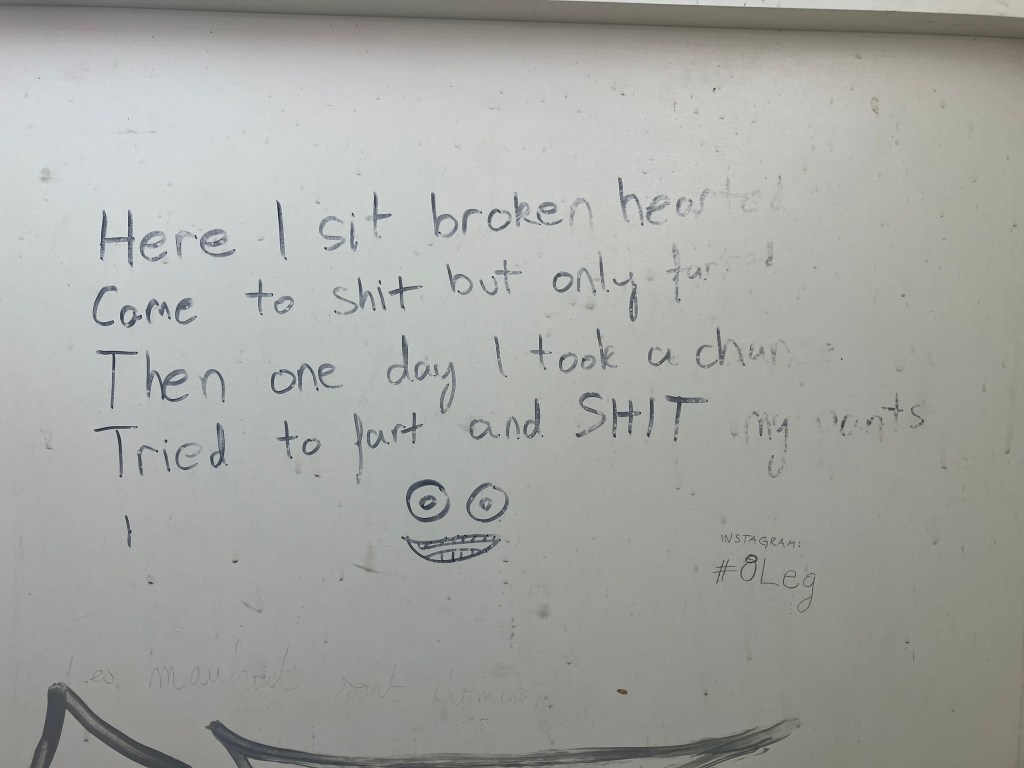 Here I sit broken hearted
Came to shit but only farted
Then one day I took a
Tried to fart and SHIT my pants
INSTAGRAM:
#8Leg
sont